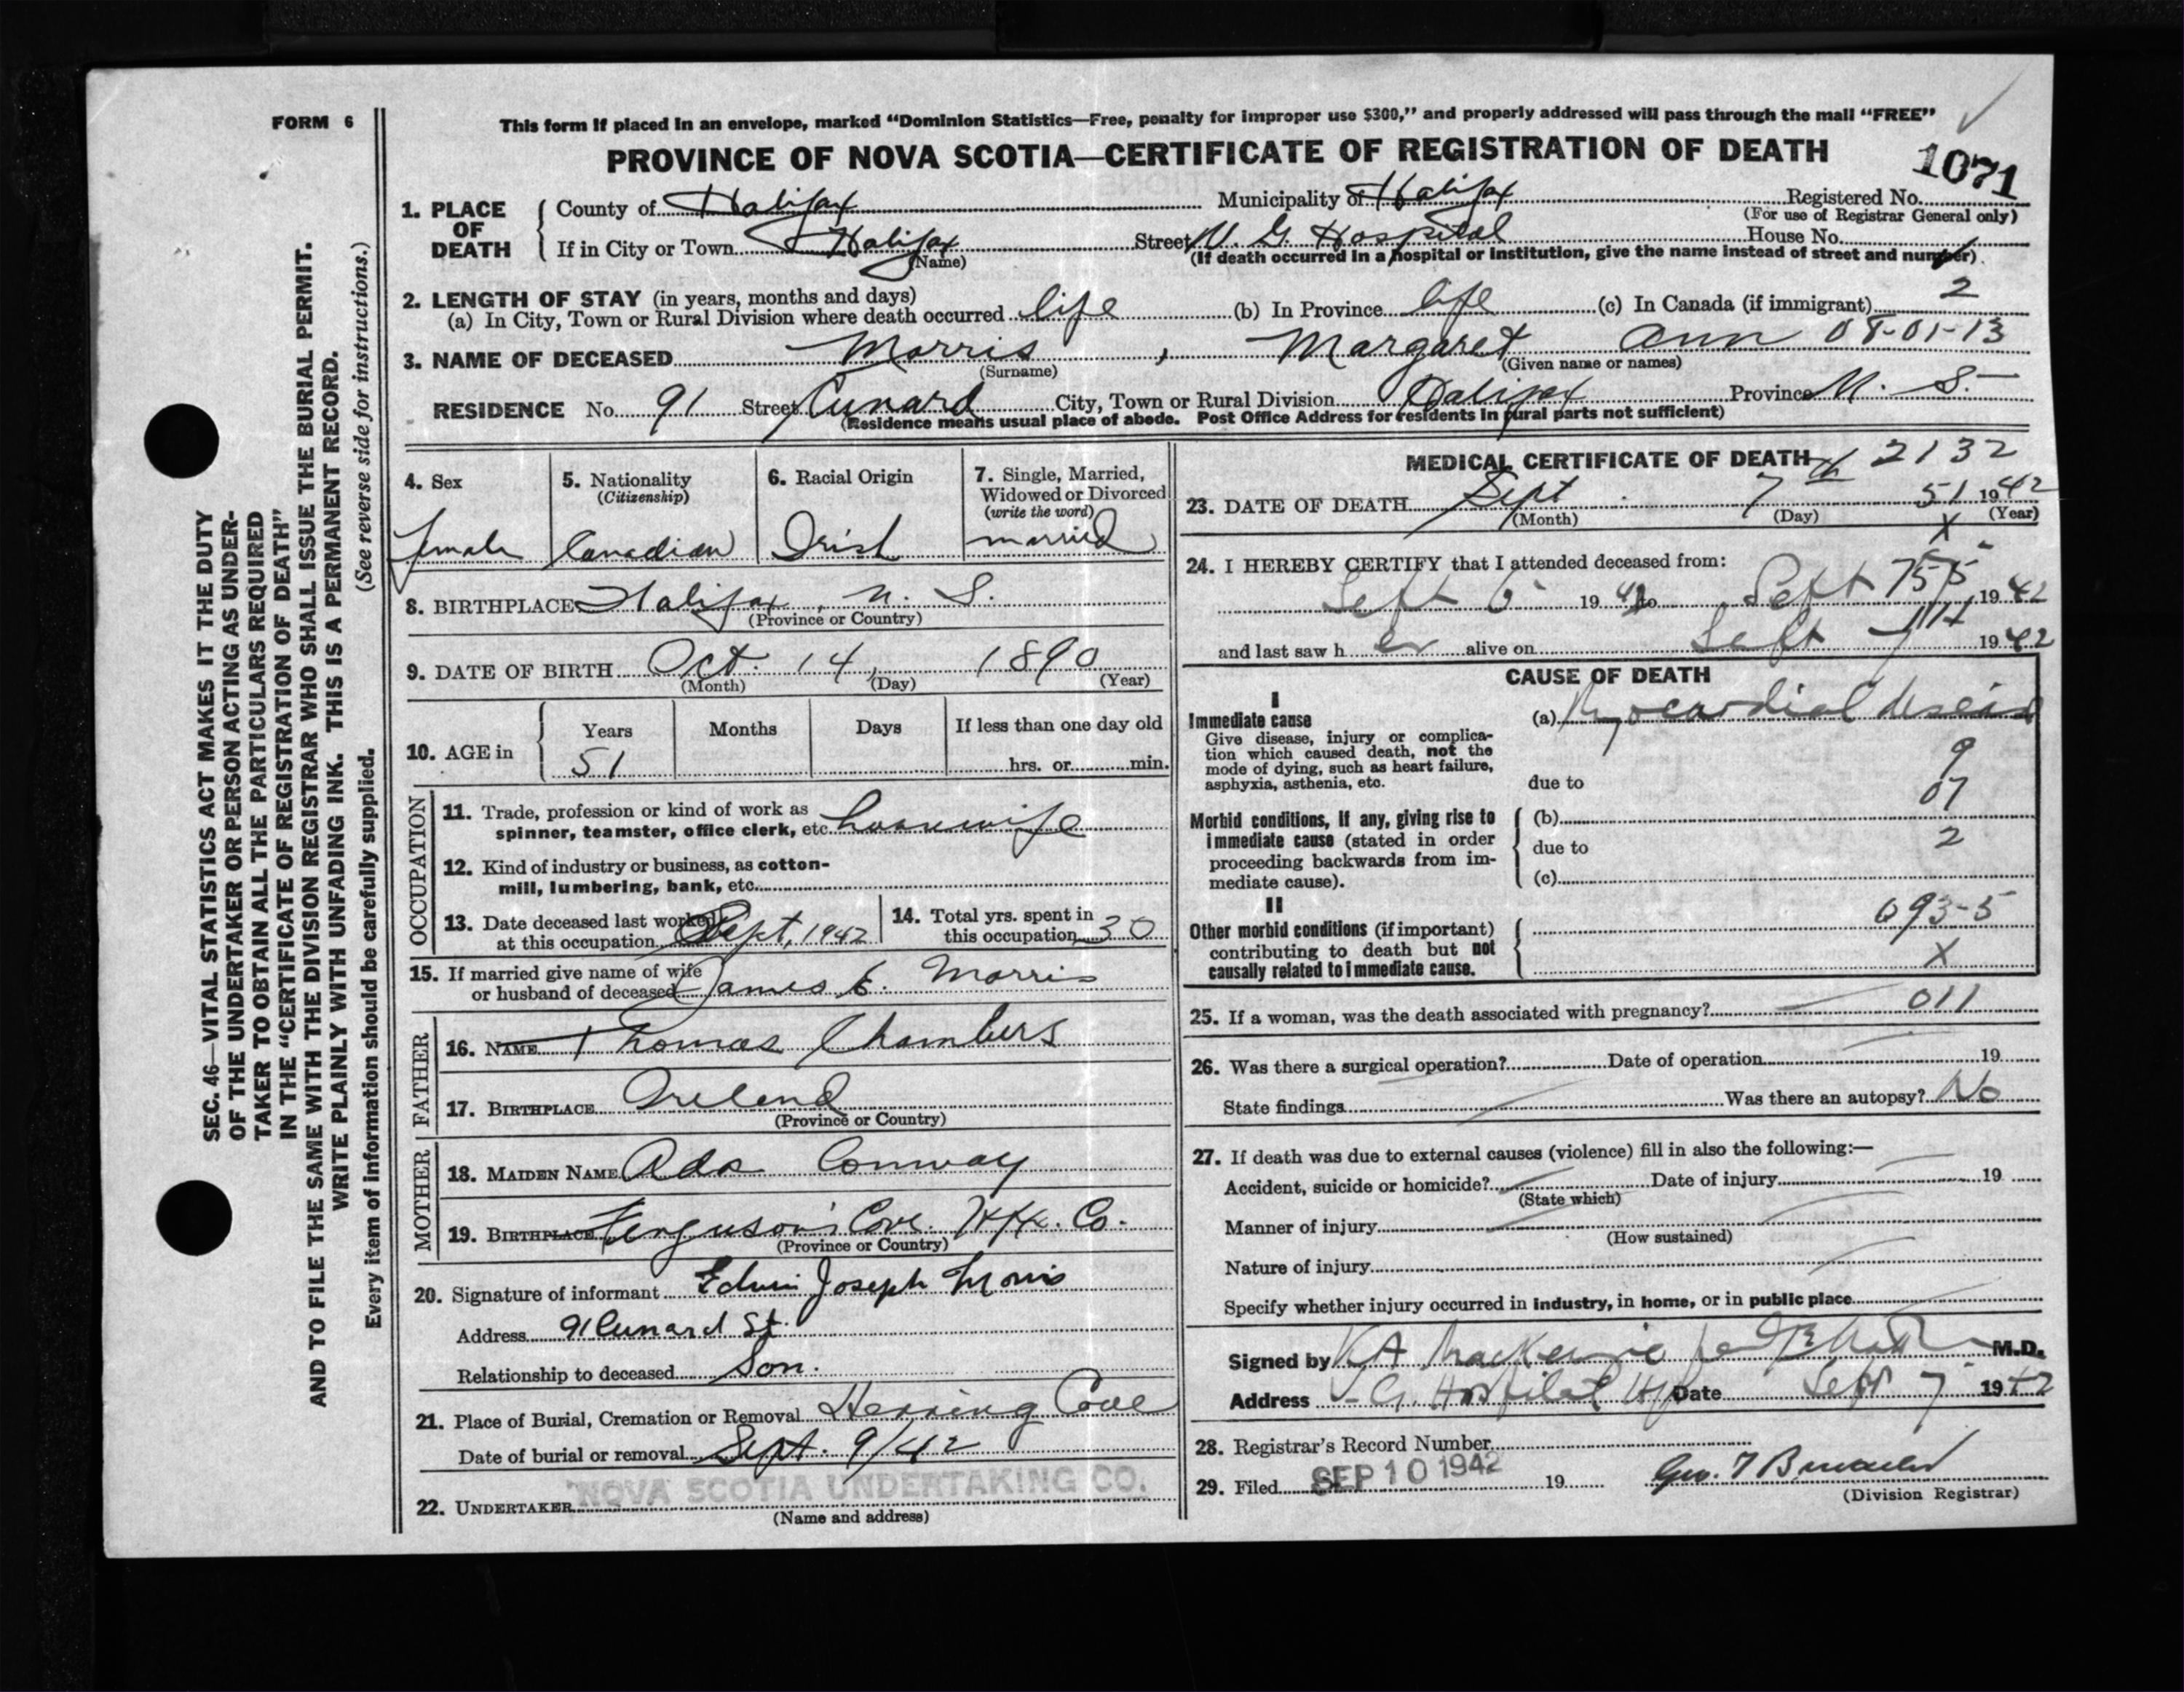 FORM 6
This form if placed in an envelope, marked "Dominion Statistics—Free, penalty for improper use $300," and properly addressed will pass through the mail "FREE"
PROVINCE OF NOVA SCOTIA—CERTIFICATE OF REGISTRATION OF DEATH
1071
1. PLACE OF DEATH
County of Halifax Municipality of Halifax Registered No.
(For use of Registrar General only)
If in City or Town Halifax Street V. G. Hospital House No.
(Name) (If death occurred in a hospital or institution, give the name instead of street and number)
2. LENGTH OF STAY (in years, months and days)
(a) In City, Town or Rural Division where death occurred life (b) In Province life (c) In Canada (if immigrant) 2
3. NAME OF DECEASED Morris, Margaret Ann 08-01-13
(Surname) (Given name or names)
RESIDENCE No. 91 Street Cunard City, Town or Rural Division Halifax Province N. S.
(Residence means usual place of abode. Post Office Address for residents in rural parts not sufficient)
4. Sex 5. Nationality 6. Racial Origin 7. Single, Married,
(Citizenship) Widowed or Divorced
(write the word)
Female Canadian Irish married
8. BIRTHPLACE Halifax, N. S.
(Province or Country)
9. DATE OF BIRTH Oct. 14, 1890
(Month) (Day) (Year)
10. AGE in Years Months Days If less than one day old
51 hrs. or min.
OCCUPATION
11. Trade, profession or kind of work as
spinner, teamster, office clerk, etc. housewife
12. Kind of industry or business, as cotton-
mill, lumbering, bank, etc.
13. Date deceased last worked
at this occupation Sept, 1942
14. Total yrs. spent in
this occupation 30
15. If married give name of wife
or husband of deceased James E. Morris
FATHER
16. NAME Thomas Chambers
17. BIRTHPLACE Ireland
(Province or Country)
MOTHER
18. MAIDEN NAME Ada Conway
19. BIRTHPLACE Ferguson's Cove. Hfx. Co.
(Province or Country)
20. Signature of informant Edwin Joseph Morris
Address 91 Cunard St.
Relationship to deceased Son.
21. Place of Burial, Cremation or Removal Herring Cove
Date of burial or removal Sept. 9/42
22. UNDERTAKER NOVA SCOTIA UNDERTAKING CO.
(Name and address)
MEDICAL CERTIFICATE OF DEATH 2132
23. DATE OF DEATH Sept 7th 51 1942
(Month) (Day) (Year)
X
24. I HEREBY CERTIFY that I attended deceased from:
Sept 6 1942 to Sept 7 1942
and last saw her alive on Sept 7 1942
CAUSE OF DEATH
I
Immediate cause
Give disease, injury or complica-
tion which caused death, not the
mode of dying, such as heart failure,
asphyxia, asthenia, etc.
(a) Myocardial disease
9
due to
07
Morbid conditions, if any, giving rise to
immediate cause (stated in order
proceeding backwards from im-
mediate cause).
(b)
due to 2
(c)
II
Other morbid conditions (if important)
contributing to death but not
causally related to immediate cause.
093-5
X
25. If a woman, was the death associated with pregnancy? 011
26. Was there a surgical operation? Date of operation 19
State findings Was there an autopsy? No
27. If death was due to external causes (violence) fill in also the following:—
Accident, suicide or homicide? Date of injury 19
(State which)
Manner of injury
(How sustained)
Nature of injury
Specify whether injury occurred in industry, in home, or in public place
Signed by K A MacKenzie M.D.
Address V. G. Hospital Hfx Date Sept 7 1942
28. Registrar's Record Number
29. Filed SEP 10 1942 19 Geo.
(Division Registrar)
SEC. 46—VITAL STATISTICS ACT MAKES IT THE DUTY
OF THE UNDERTAKER OR PERSON ACTING AS UNDER-
TAKER TO OBTAIN ALL THE PARTICULARS REQUIRED
IN THE "CERTIFICATE OF REGISTRATION OF DEATH"
AND TO FILE THE SAME WITH THE DIVISION REGISTRAR WHO SHALL ISSUE THE BURIAL PERMIT.
WRITE PLAINLY WITH UNFADING INK. THIS IS A PERMANENT RECORD.
(See reverse side for instructions.)
Every item of information should be carefully supplied.